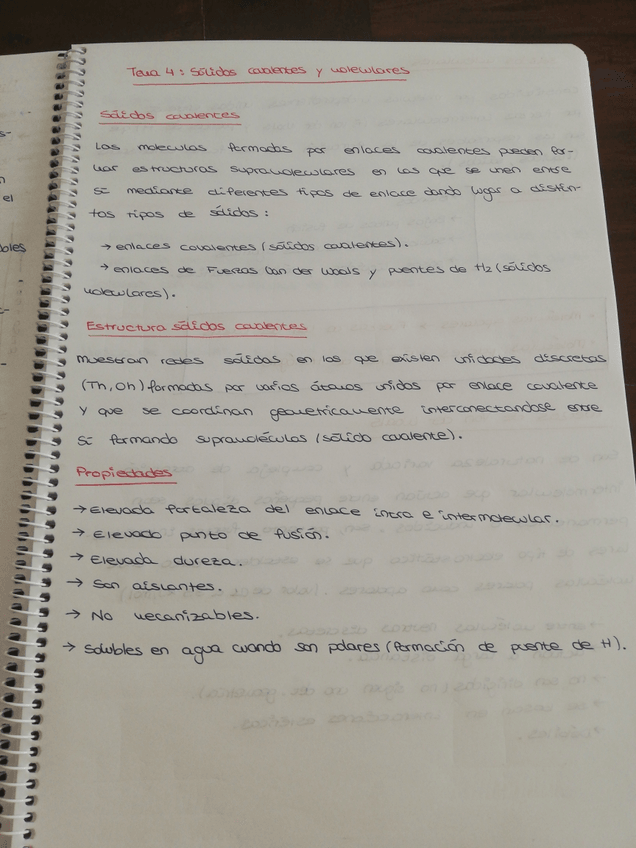 Tema 4: Sólidos covalentes y moleculares
Sólidos covalentes
Las moleculas formadas por enlaces covalentes pueden for-
mar estructuras supramoleculares en las que se unen entre
sí mediante diferentes tipos de enlace dando lugar a distin-
tos tipos de sólidos:
→ enlaces covalentes (sólidos covalentes).
→ enlaces de Fuerzas Van der Waals y puentes de H2 (sólidos
moleculares).
Estructura sólidos covalentes
Muestran redes sólidas en las que existen unidades discretas
(Th, Oh) formadas por varios átomos unidos por enlace covalente
y que se coordinan geometricamente interconectandose entre
sí formando supramoléculas (sólido covalente).
Propiedades
→ Elevada fortaleza del enlace intra e intermolecular.
→ Elevado punto de fusión.
→ Elevada dureza.
→ Son aislantes.
→ No mecanizables.
→ Solubles en agua cuando son polares (formación de puente de H).
s-
n
el
bles